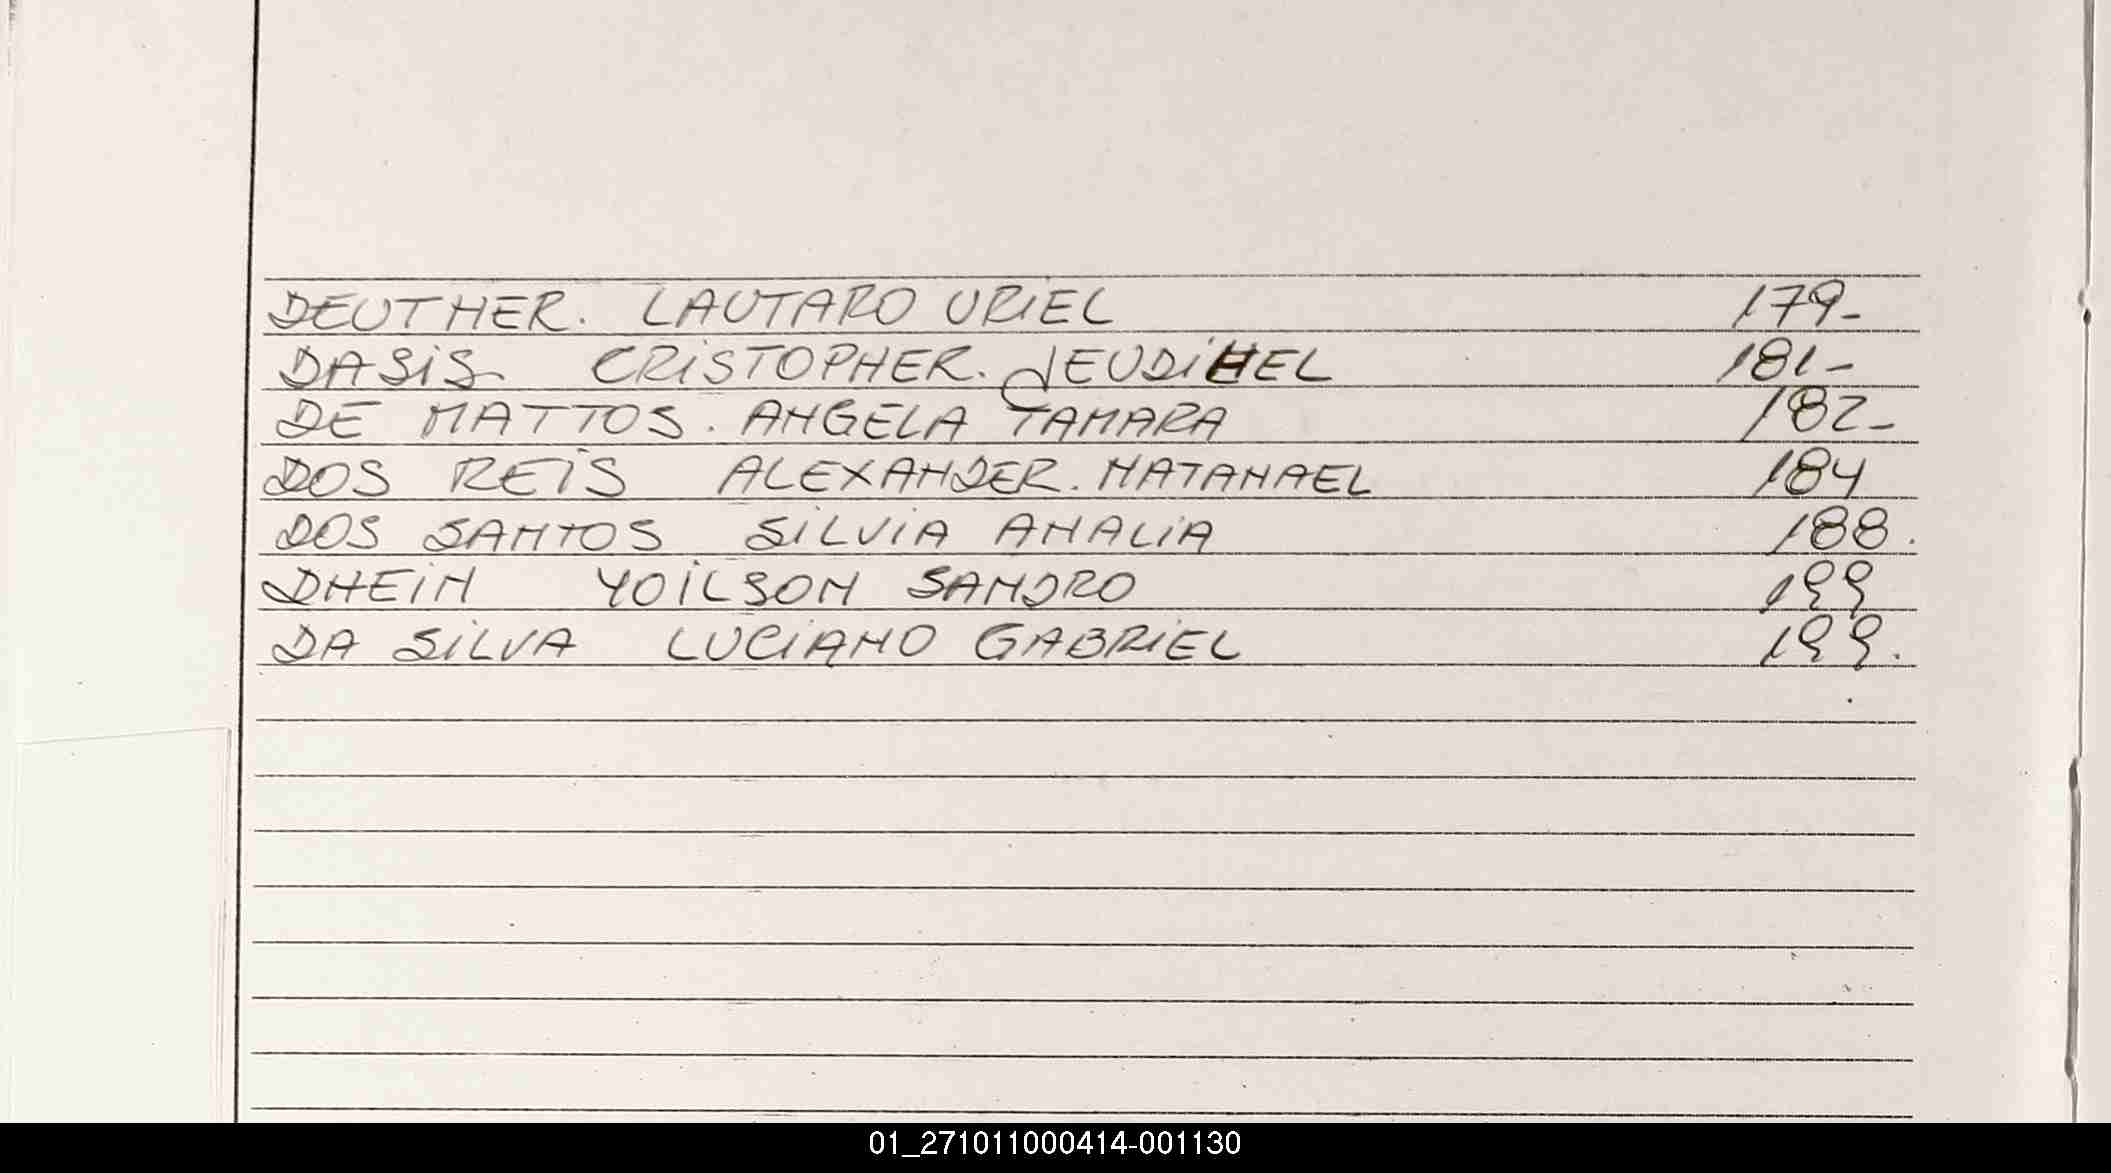 DEUTHER. LAUTARO URIEL 179-
DASIS- CRISTOPHER. JEUDIHEL 181-
DE MATTOS. ANGELA TAMARA 182-
DOS REIS ALEXANDER. NATANAEL 184
DOS SANTOS SILVIA ANALIA 188.
DHEIN YOILSON SANDRO 199
DA SILVA LUCIANO GABRIEL 199.
01_271011000414-001130